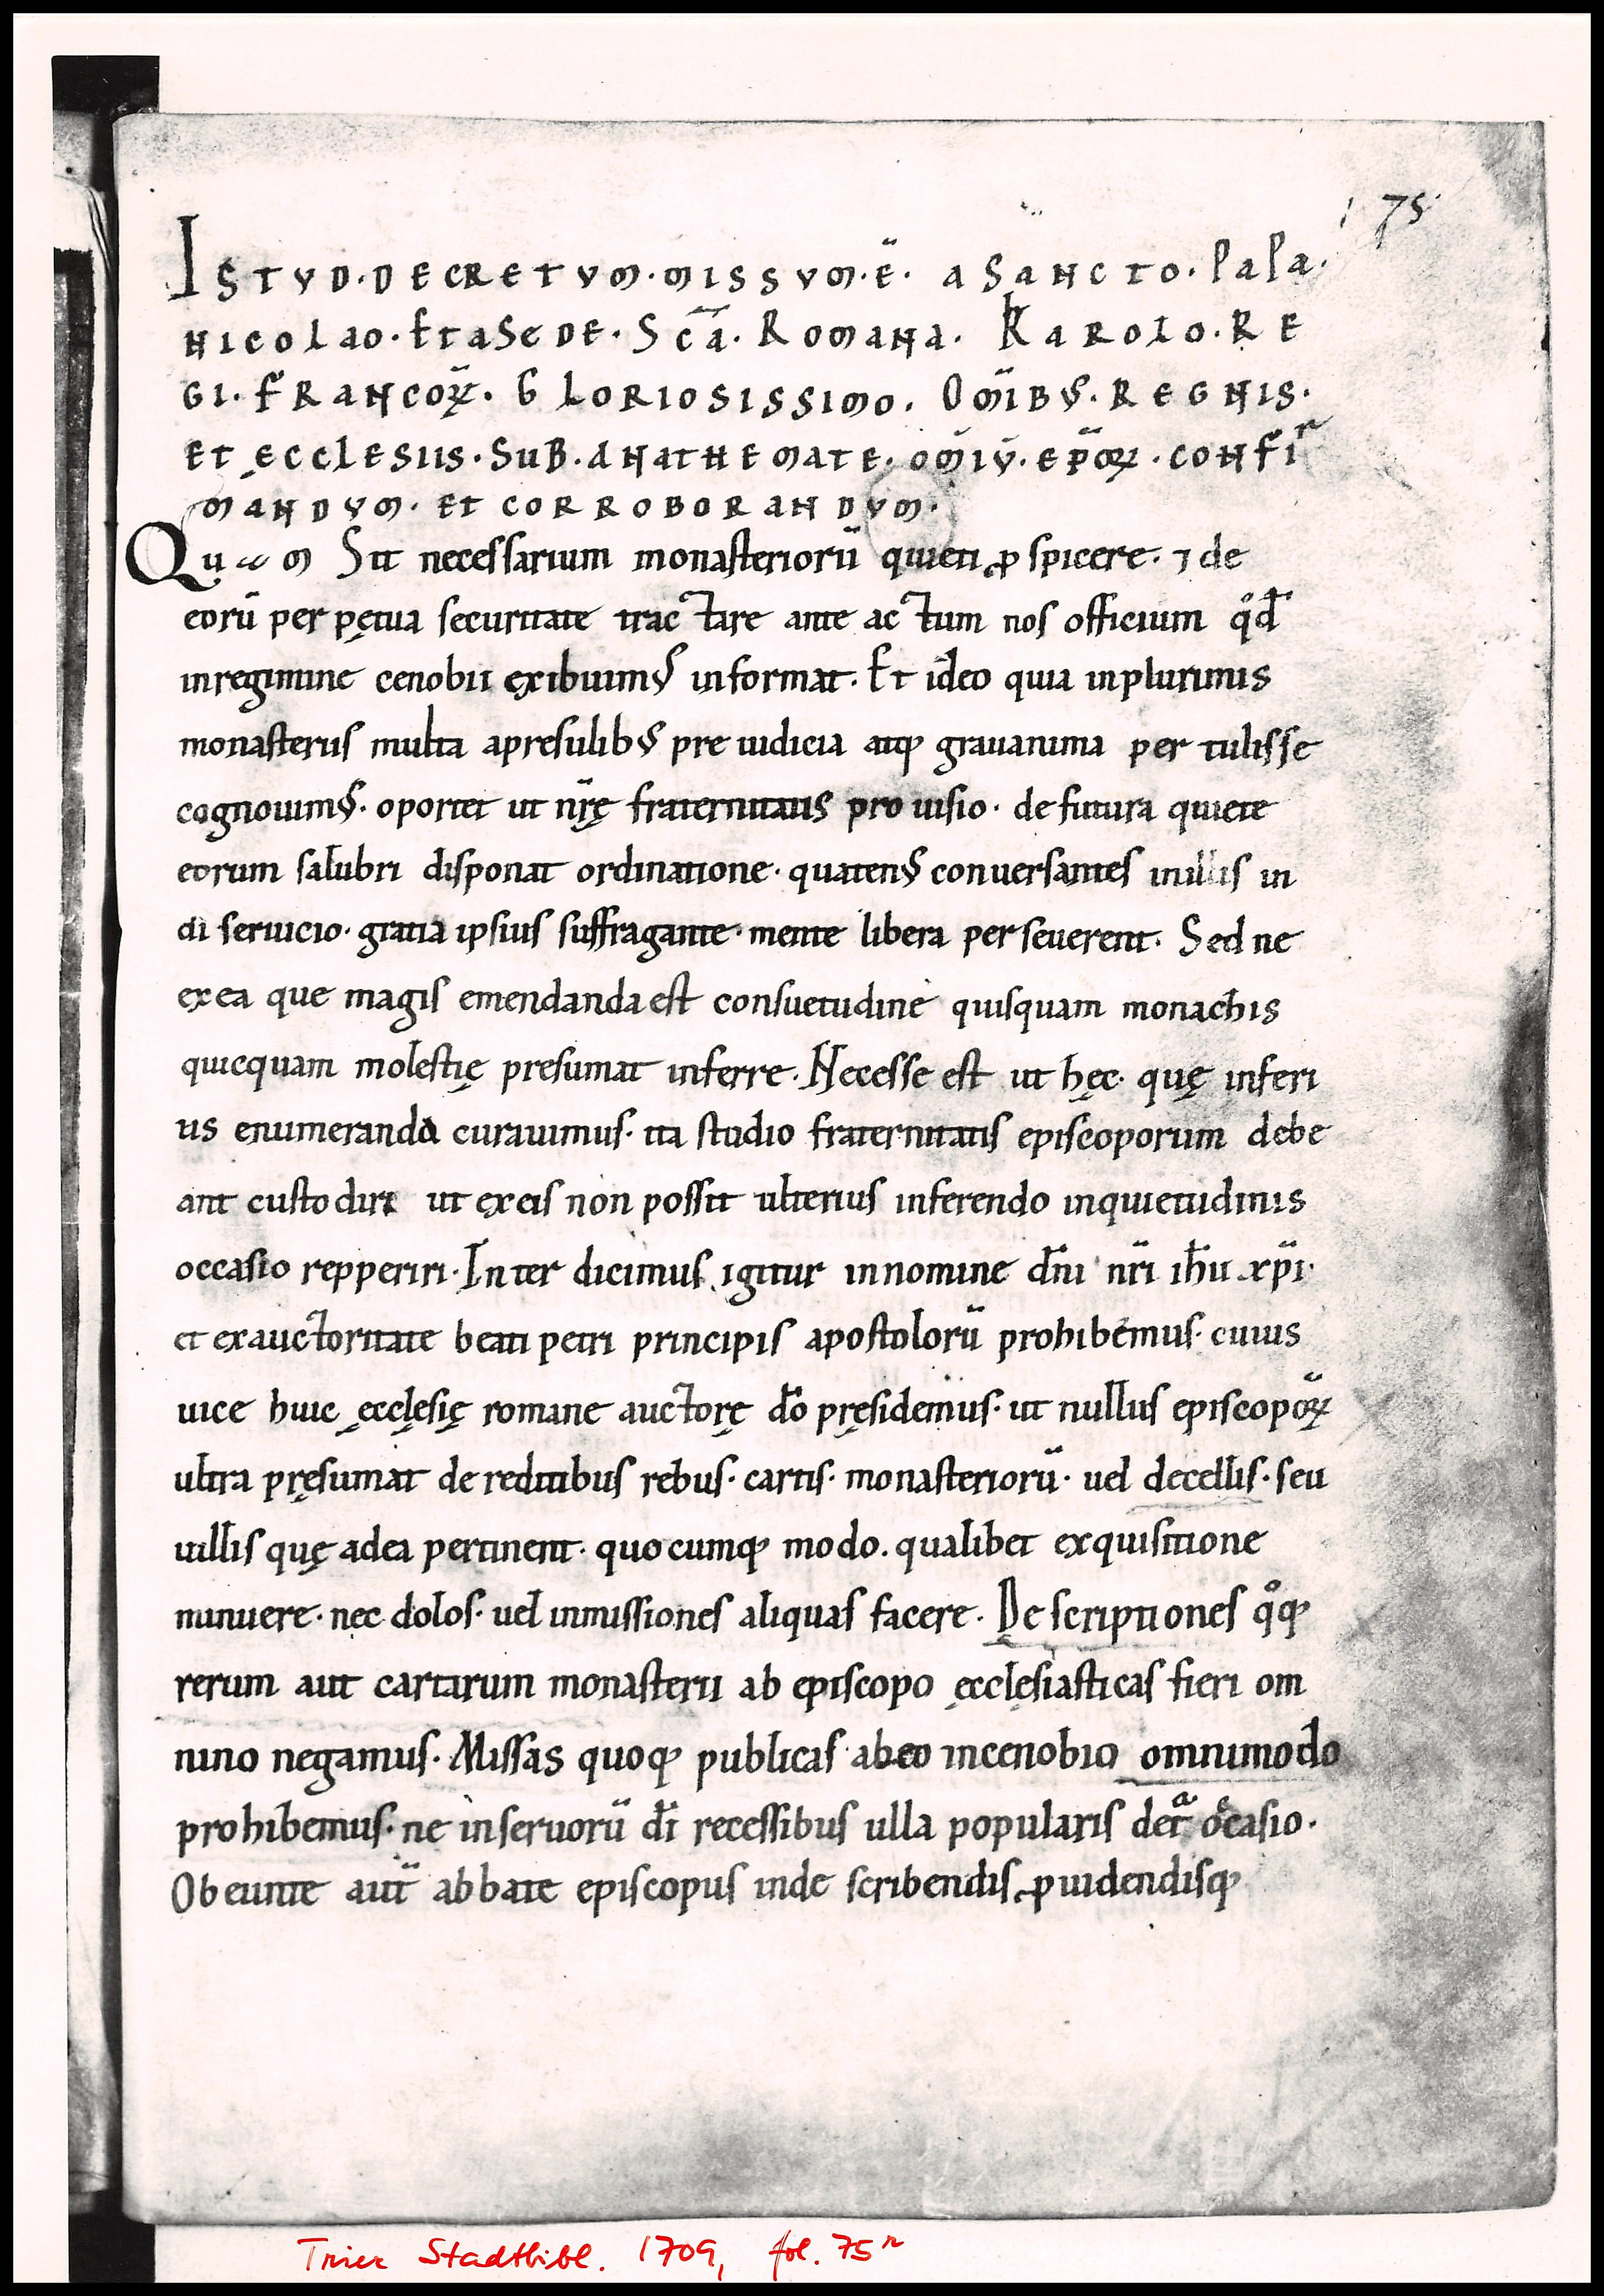 75
ISTVD·DECRETVM·MISSVM·Ē· A SANCTO·PAPA·
NICOLAO·ET A SEDE·SC̄A·ROMANA· KAROLO·RE
GI·FRANCOꝜ·GLORIOSISSIMO· OM̄IBꝰ·REGNIS·
ET ĘCCLESIIS·SUB·ANATHEMATE·OM̄IŪ·EP̄OꝜ·CONFIR
MANDVM·ET CORROBORANDVM·
Quam Sit necessarium monasteriorū quieti ꝓspicere· ⁊ de
eorū per pętua securitate tractare ante actum nos officium qͦd̄
inregimine cenobii exibuimꝰ informat· Et ideo quia inplurimis
monasteriis multa apresulibꝰ pre iudicia atqꝫ grauamina per tulisse
cognouimꝰ· oportet ut nr̄ę fraternitatis pro uisio· de futura quiete
eorum salubri disponat ordinatione· quatenꝰ conuersantes inillis in
dī seruicio· gratia ipsius suffragante· mente libera per seuerent· Sed ne
ex ea que magis emendanda est consuetudine quisquam monachis
quicquam molestię presumat inferre· Necesse est ut hęc· quę inferi
us enumeranda curauimus· ita studio fraternitatis episcoporum debe
ant custodiri ut ex eis non possit ulterius inferendo inquietudinis
occasio repperiri· Inter dicimus igitur innomine dn̄i nr̄i ih̄u xp̄i·
et exauctoritate beati petri principis apostolorū prohibemus· cuius
uice huic ęcclęsię romane auctorę dō pręsidemus· ut nullus episcopoꝝ
ultra pręsumat de reditibus rebus· cartis· monasteriorū· uel decellis· seu
uillis quę adea pertinent· quo cumqꝫ modo· qualibet exquisitione
minuere· nec dolos· uel inmissiones aliquas facere· De scriptiones qͦqꝫ
rerum aut cartarum monasterii ab episcopo ęcclęsiasticas fieri om
nino negamus· Missas quoqꝫ publicas abeo incenobio omnimodo
prohibemus· ne inseruorū dī recessibus ulla popularis detͣ occasio·
Ob eunte aut̄ abbate episcopus inde scribendis ꝓuidendisqꝫ
Trier Stadtbibl. 1709, fol. 75ʳ